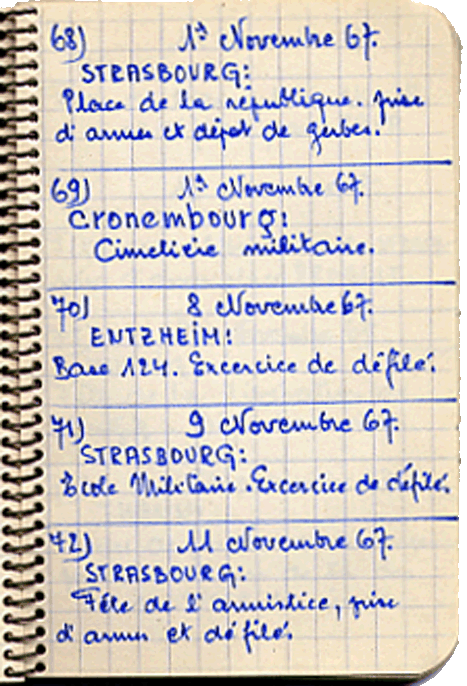 68) 1er Novembre 67.
STRASBOURG:
Place de la république. prise
d'armes et dépot de gerbes.
69) 1er Novembre 67.
Cronembourg:
Cimetière militaire.
70) 8 Novembre 67.
ENTZHEIM:
Base 124. Excercice de défilé.
71) 9 Novembre 67.
STRASBOURG:
Ecole Militaire. Excercice de défilé.
72) 11 Novembre 67.
STRASBOURG:
Fête de l'armistice, prise
d'armes et défilé.